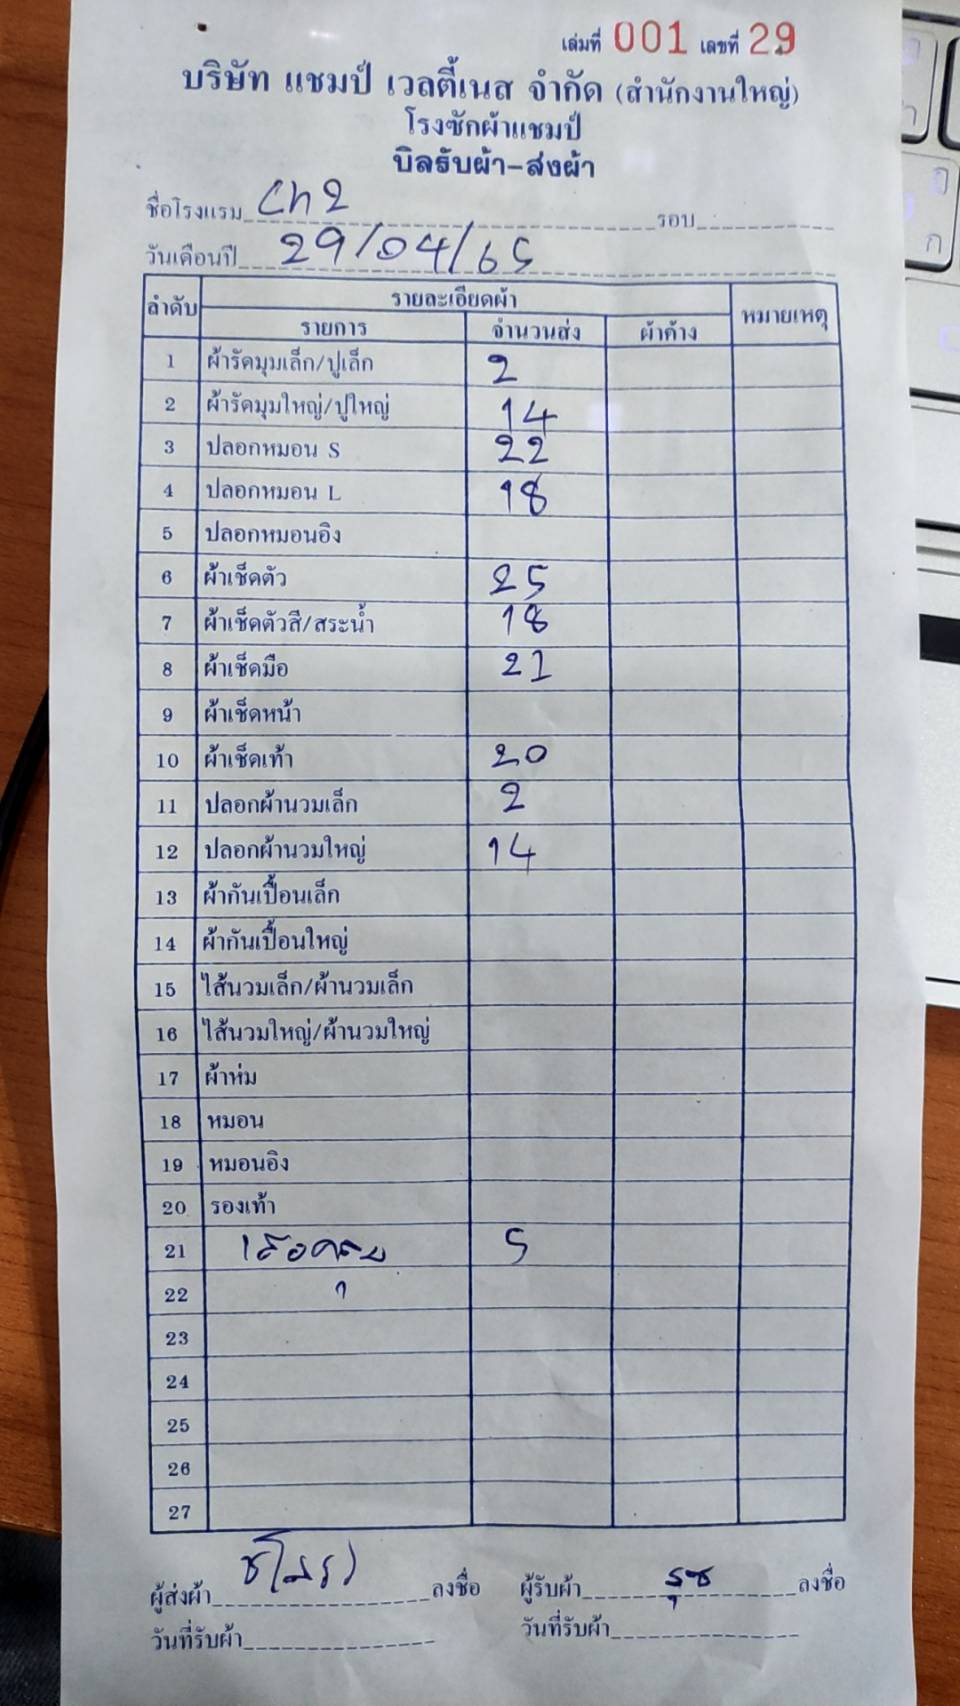 เล่มที่ 001 เลขที่ 29
บริษัท แชมป์ เวลตี้เนส จำกัด (สำนักงานใหญ่)
โรงซักผ้าแชมป์
บิลรับผ้า-ส่งผ้า
ชื่อโรงแรม Ch2 รอบ
วันเดือนปี 29/04/65
ลำดับ รายละเอียดผ้า หมายเหตุ
รายการ จำนวนส่ง ผ้าค้าง
1 ผ้ารัดมุมเล็ก/ปูเล็ก 2
2 ผ้ารัดมุมใหญ่/ปูใหญ่ 14
3 ปลอกหมอน S 22
4 ปลอกหมอน L 18
5 ปลอกหมอนอิง
6 ผ้าเช็ดตัว 25
7 ผ้าเช็ดตัวสี/สระน้ำ 18
8 ผ้าเช็ดมือ 21
9 ผ้าเช็ดหน้า
10 ผ้าเช็ดเท้า 20
11 ปลอกผ้านวมเล็ก 2
12 ปลอกผ้านวมใหญ่ 14
13 ผ้ากันเปื้อนเล็ก
14 ผ้ากันเปื้อนใหญ่
15 ไส้นวมเล็ก/ผ้านวมเล็ก
16 ไส้นวมใหญ่/ผ้านวมใหญ่
17 ผ้าห่ม
18 หมอน
19 หมอนอิง
20 รองเท้า
21 เสื้อคลุม 5
22
23
24
25
26
27
ผู้ส่งผ้า ลงชื่อ ผู้รับผ้า ลงชื่อ
วันที่รับผ้า วันที่รับผ้า